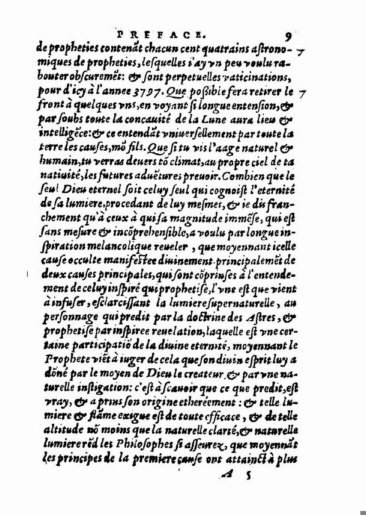 PREFACE. 9
de propheties contenãt chacun cent quatrains astrono-
miques de propheties, lesquelles i'ay vn peu voulu ra-
bouter obscuremẽt: & sont perpetuelles vaticinations,
pour d'icy à l'annee 3797. Que poßible fera retirer le
front à quelques vns, en voyant si longue entension, &
par soubs toute la concauité de la Lune aura lieu &
intelligẽce: & ce entendant vniuersellement par toute la
terre les causes, mõ fils. Que si tu vis l'aage naturel &
humain, tu verras deuers tõ climat, au propre ciel de ta
natiuité, les futures aduẽtures preuoir. Combien que le
seul Dieu eternel soit celuy seul qui cognoist l'eternité
de sa lumiere, procedant de luy mesmes, & ie dis fran-
chement qu'à ceux à qui sa magnitude immẽse, qui est
sans mesure & incõprehensible, a voulu par longue in-
spiration melancolique reueler, que moyennant icelle
cause occulte manifestee diuinement, principalemẽt de
deux causes principales, qui sont cõprinses à l'entende-
ment de celuy inspiré qui prophetise, l'vne est que vient
à infuser, esclarcissant la lumiere supernaturelle, au
personnage qui predit par la doctrine des Astres, &
prophetise par inspiree reuelation, laquelle est vne cer-
taine participatiõ de la diuine eternité, moyennant le
Prophete viẽt à iuger de cela que son diuin esprit luy a
dõné par le moyen de Dieu le createur, & par vne na-
turelle instigation: c'est à sçauoir que ce que predit, est
vray, & a prins son origine etheréement: & telle lu-
miere & flãme exigue est de toute efficace, & de telle
altitude nõ moins que la naturelle clarté, & naturelle
lumiere rẽd les Philosophes si asseurez, que moyennãt
les principes de la premiere cause ont attainct à plus
A 5